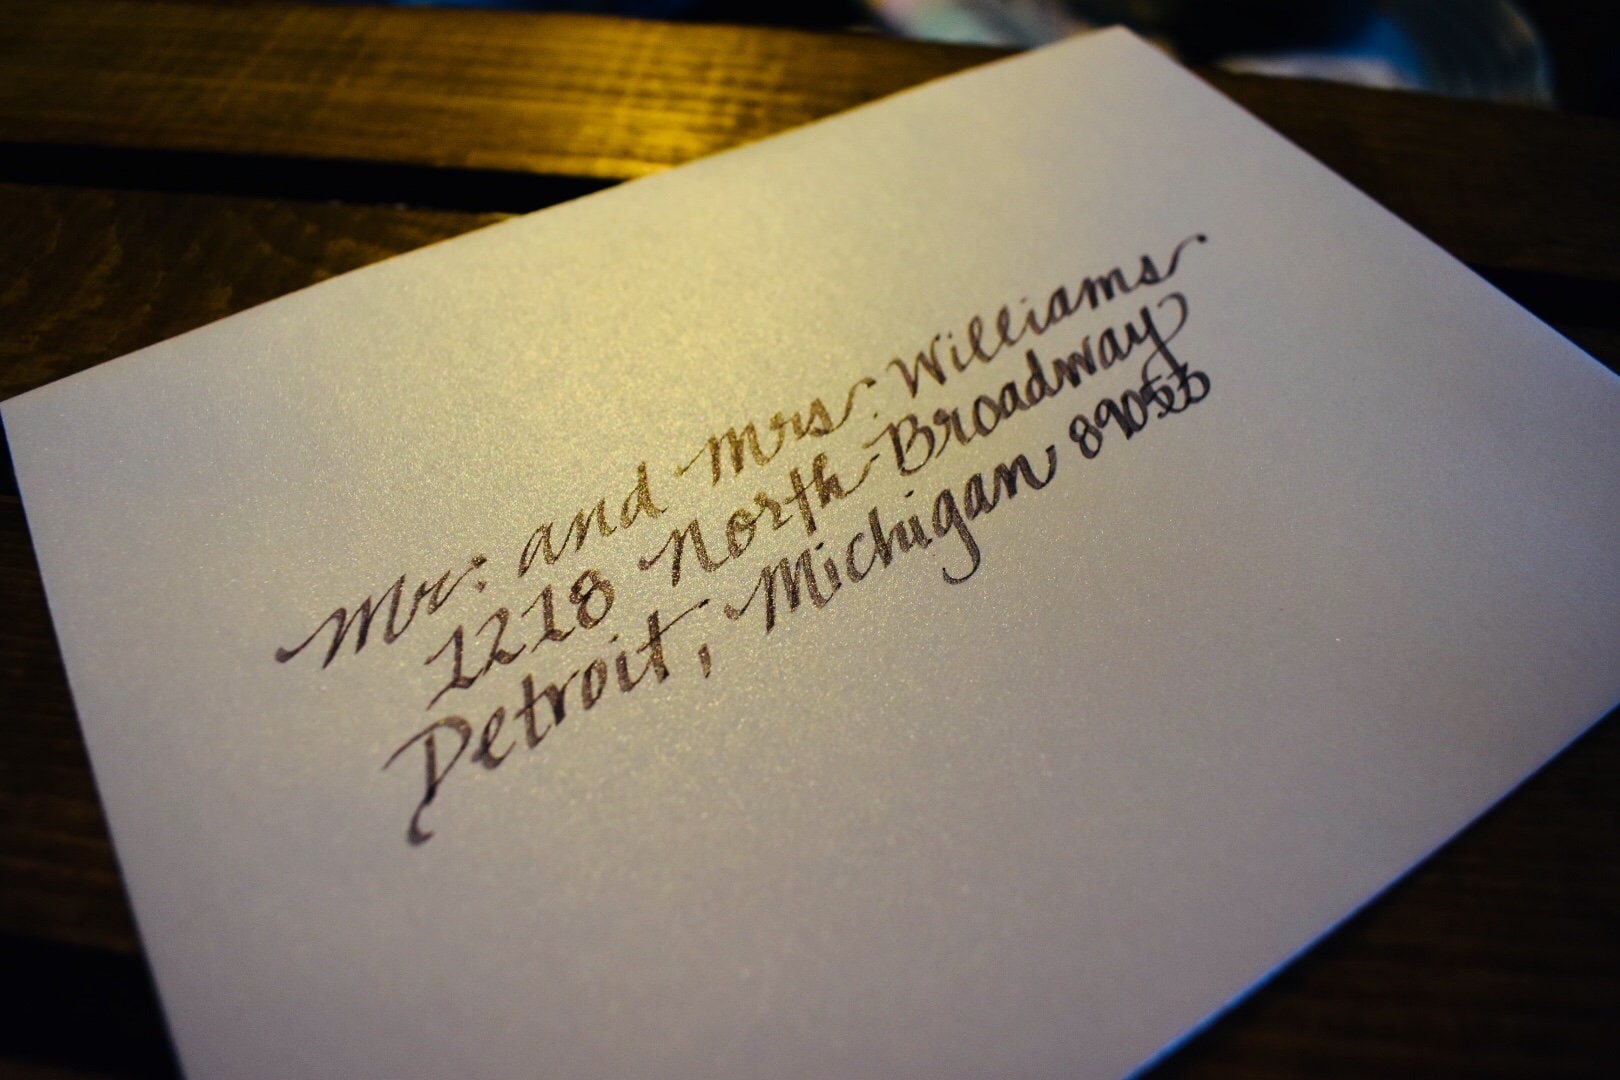 Mr. and Mrs. Williams
1218 North Broadway
Detroit, Michigan